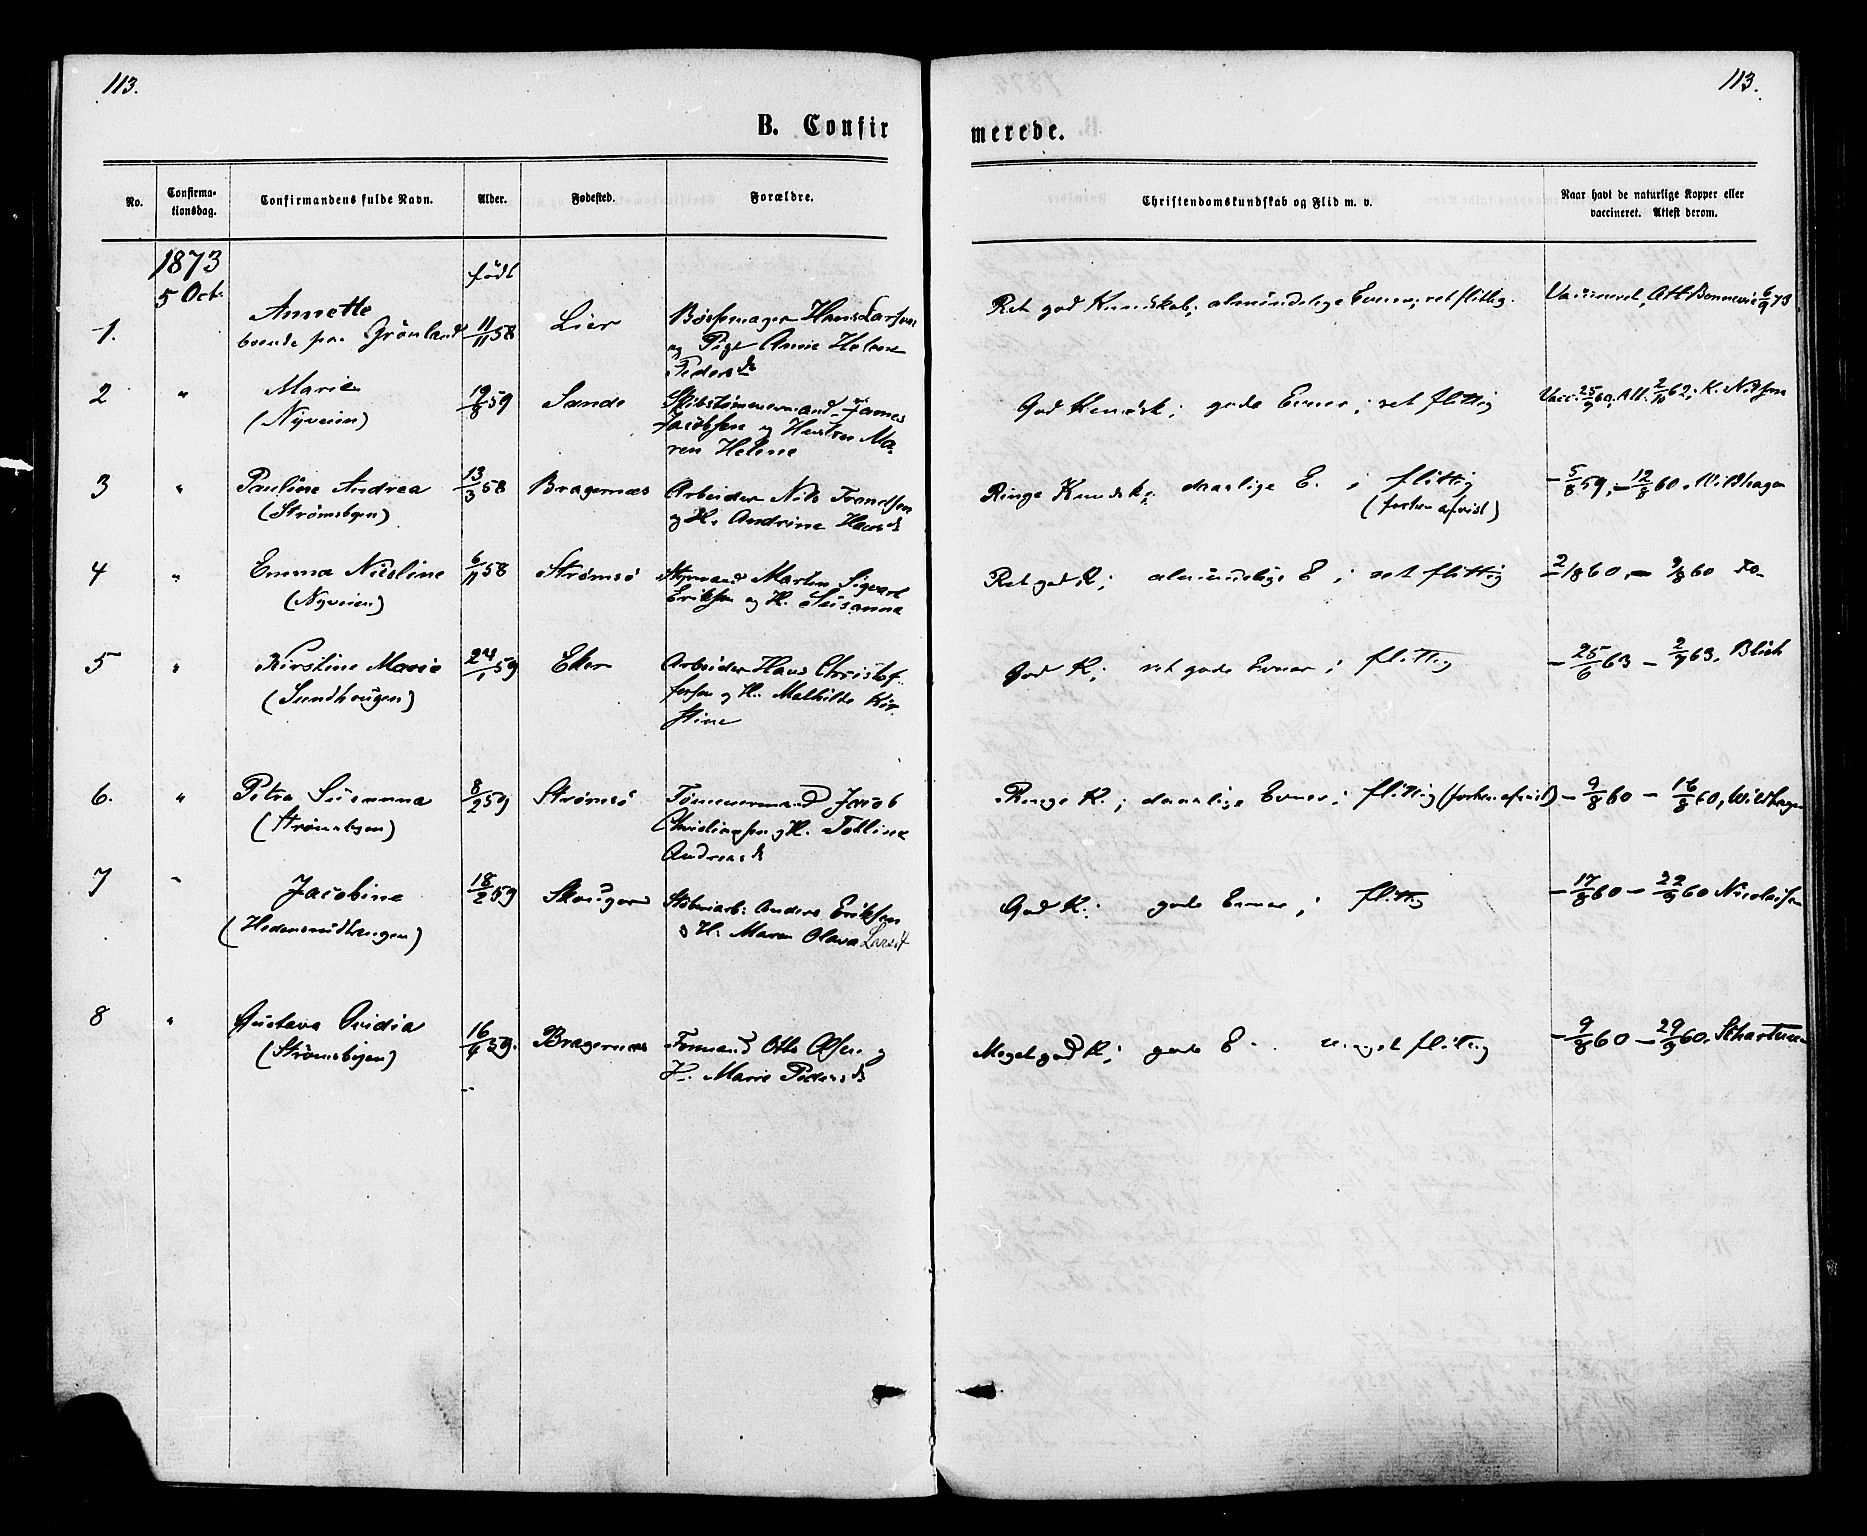 113.
113.
B. Confir
merede.
No.
Confirma-
tionsdag.
Confirmandens fulde Navn.
Alder.
Fødested.
Forældre.
Christendomskundskab og Flid m. v.
Naar havt de naturlige Kopper eller
vaccineret. Attest derom.
1873
5 Oct.
født
1.
Annette
boende paa Grønland
11/11 58
Lier
Børsemager Hans Larsen
og Pige Anne Helene
Pedersd.
Ret god Kundskab; almindelige Evner; ret flittig.
Vaccineret, Att. Bonnevie 6/9 73
2
"
Marie
(Nyveien)
19/8 59
Sande
Skibstømmermand James
Jacobsen og Hustru Ma-
ren Helene
God Kundsk; gode Evner; ret flittig
Vacc. 25/9 60, Att. 2/10 62, K. Nilsen
3
"
Pauline Andrea
(Strømsbyen)
13/3 58
Bragernæs
Arbeider Nils Trondsen
og H. Andrine Hansd.
Ringe Kundsk.; daarlige E.; flittig
(forhen afvist)
- 5/8 59, - 12/8 60, Wildhagen
4
"
Emma Nicoline
(Nyveien)
6/11 58
Strømsø
Styrmand Martin Sigvart
Eriksen og H. Susanna
Ret god K; almindelige E; ret flittig
2/8 60 - 9/8 60 do
5
"
Kirstine Marie
(Sundhaugen)
24/1 59
Eker
Arbeider Hans Christof-
fersen og H. Mathilde Kir-
stine
God K; ret gode Evner; flittig
- 25/6 63 - 2/7 63. Blich
6.
"
Petra Susanna
(Strømsbyen)
8/2 59
Strømsø
Tømmermand Jacob
Christiansen og H. Tolline
Andreasd.
Ringe K.; daarlige Evner; flittig (forhen afvist)
- 9/8 60 - 16/8 60, Wildhagen
7
"
Jacobine
(Hedensrudhaugen)
18/2 59
Skouger
Støberiarb. Anders Eriksen
o H. Maren Olava Larsd.
God K.; gode Evner; flittig
- 17/8 60 - 22/9 60 Nicolaisen
8
"
Gustava Ovidia
(Strømsbyen)
16/4 59.
Bragernæs
Formand Otto Olsen og
H. Marie Pedersd.
Meget god K; gode E. meget flittig
- 9/8 60 - 29/9 60. Schartum